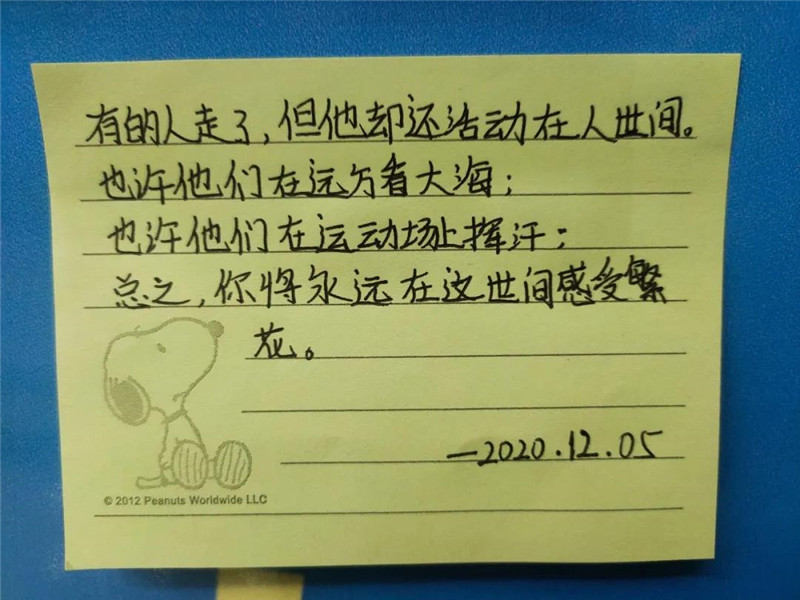 有的人走了,但他却还活动在人世间。
也许他们在远方看大海;
也许他们在运动场上挥汗;
总之,你将永远在这世间感受繁
花。
—2020.12.05
© 2012 Peanuts Worldwide LLC